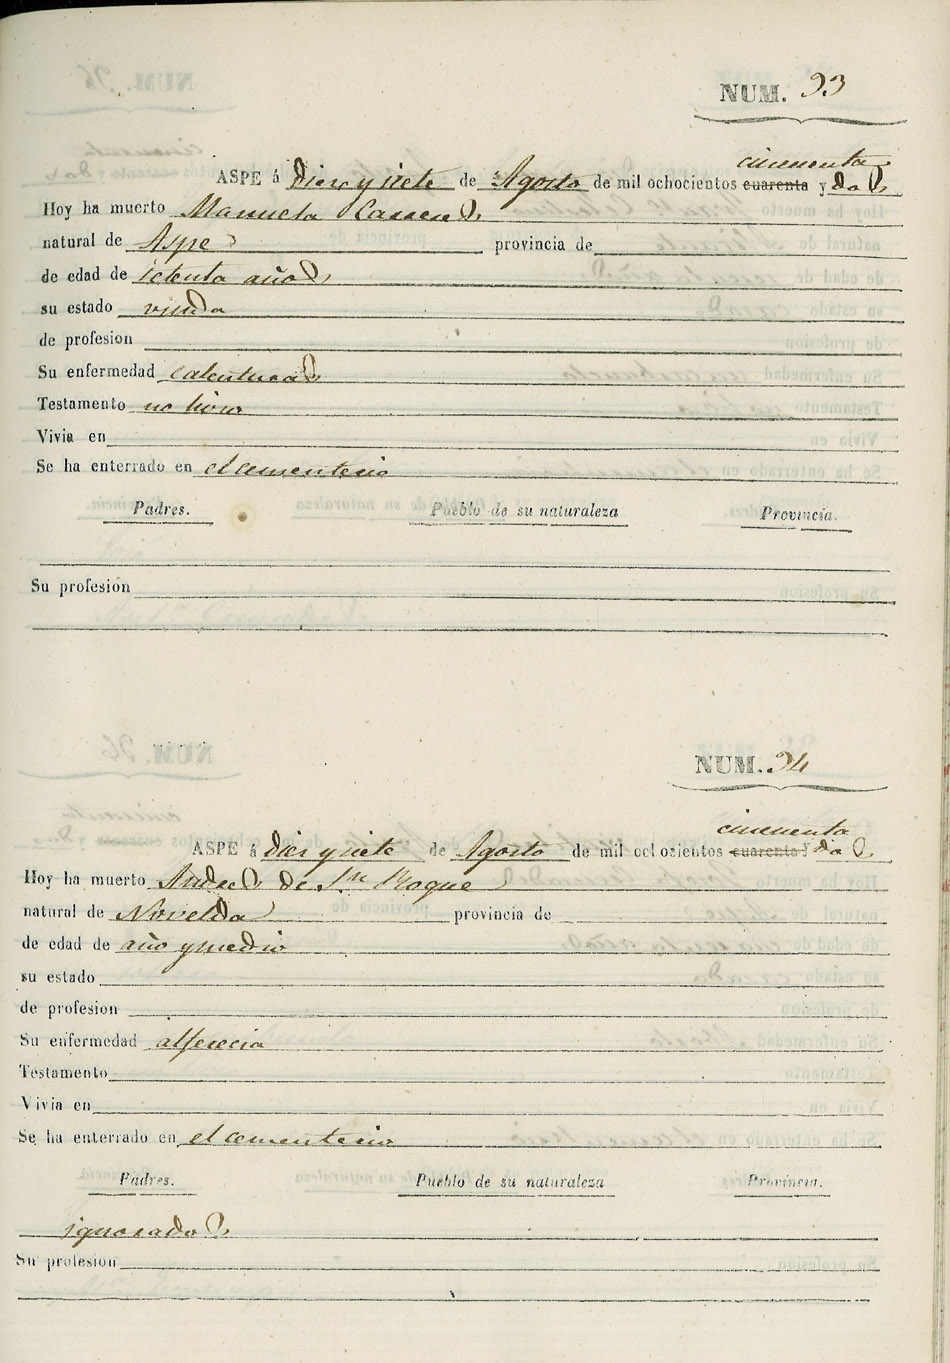 NUM. 93
cincuenta
ASPE á diez y siete de Agosto de mil ochocientos cuarenta y dos
Hoy ha muerto Manuela
natural de Aspe provincia de
de edad de setenta años
su estado viuda
de profesion
Su enfermedad calenturas
Testamento no hizo
Vivia en
Se ha enterrado en el cementerio
Padres. Pueblo de su naturaleza Provincia.
Su profesion
NUM. 94
cincuenta
ASPE á diez y siete de Agosto de mil ochocientos cuarenta y dos
Hoy ha muerto Andres de Sn Roque
natural de Novelda provincia de
de edad de año y medio
su estado
de profesion
Su enfermedad alferecia
Testamento
Vivia en
Se ha enterrado en el cementerio
Padres. Pueblo de su naturaleza Provincia.
ignorados
Su profesion